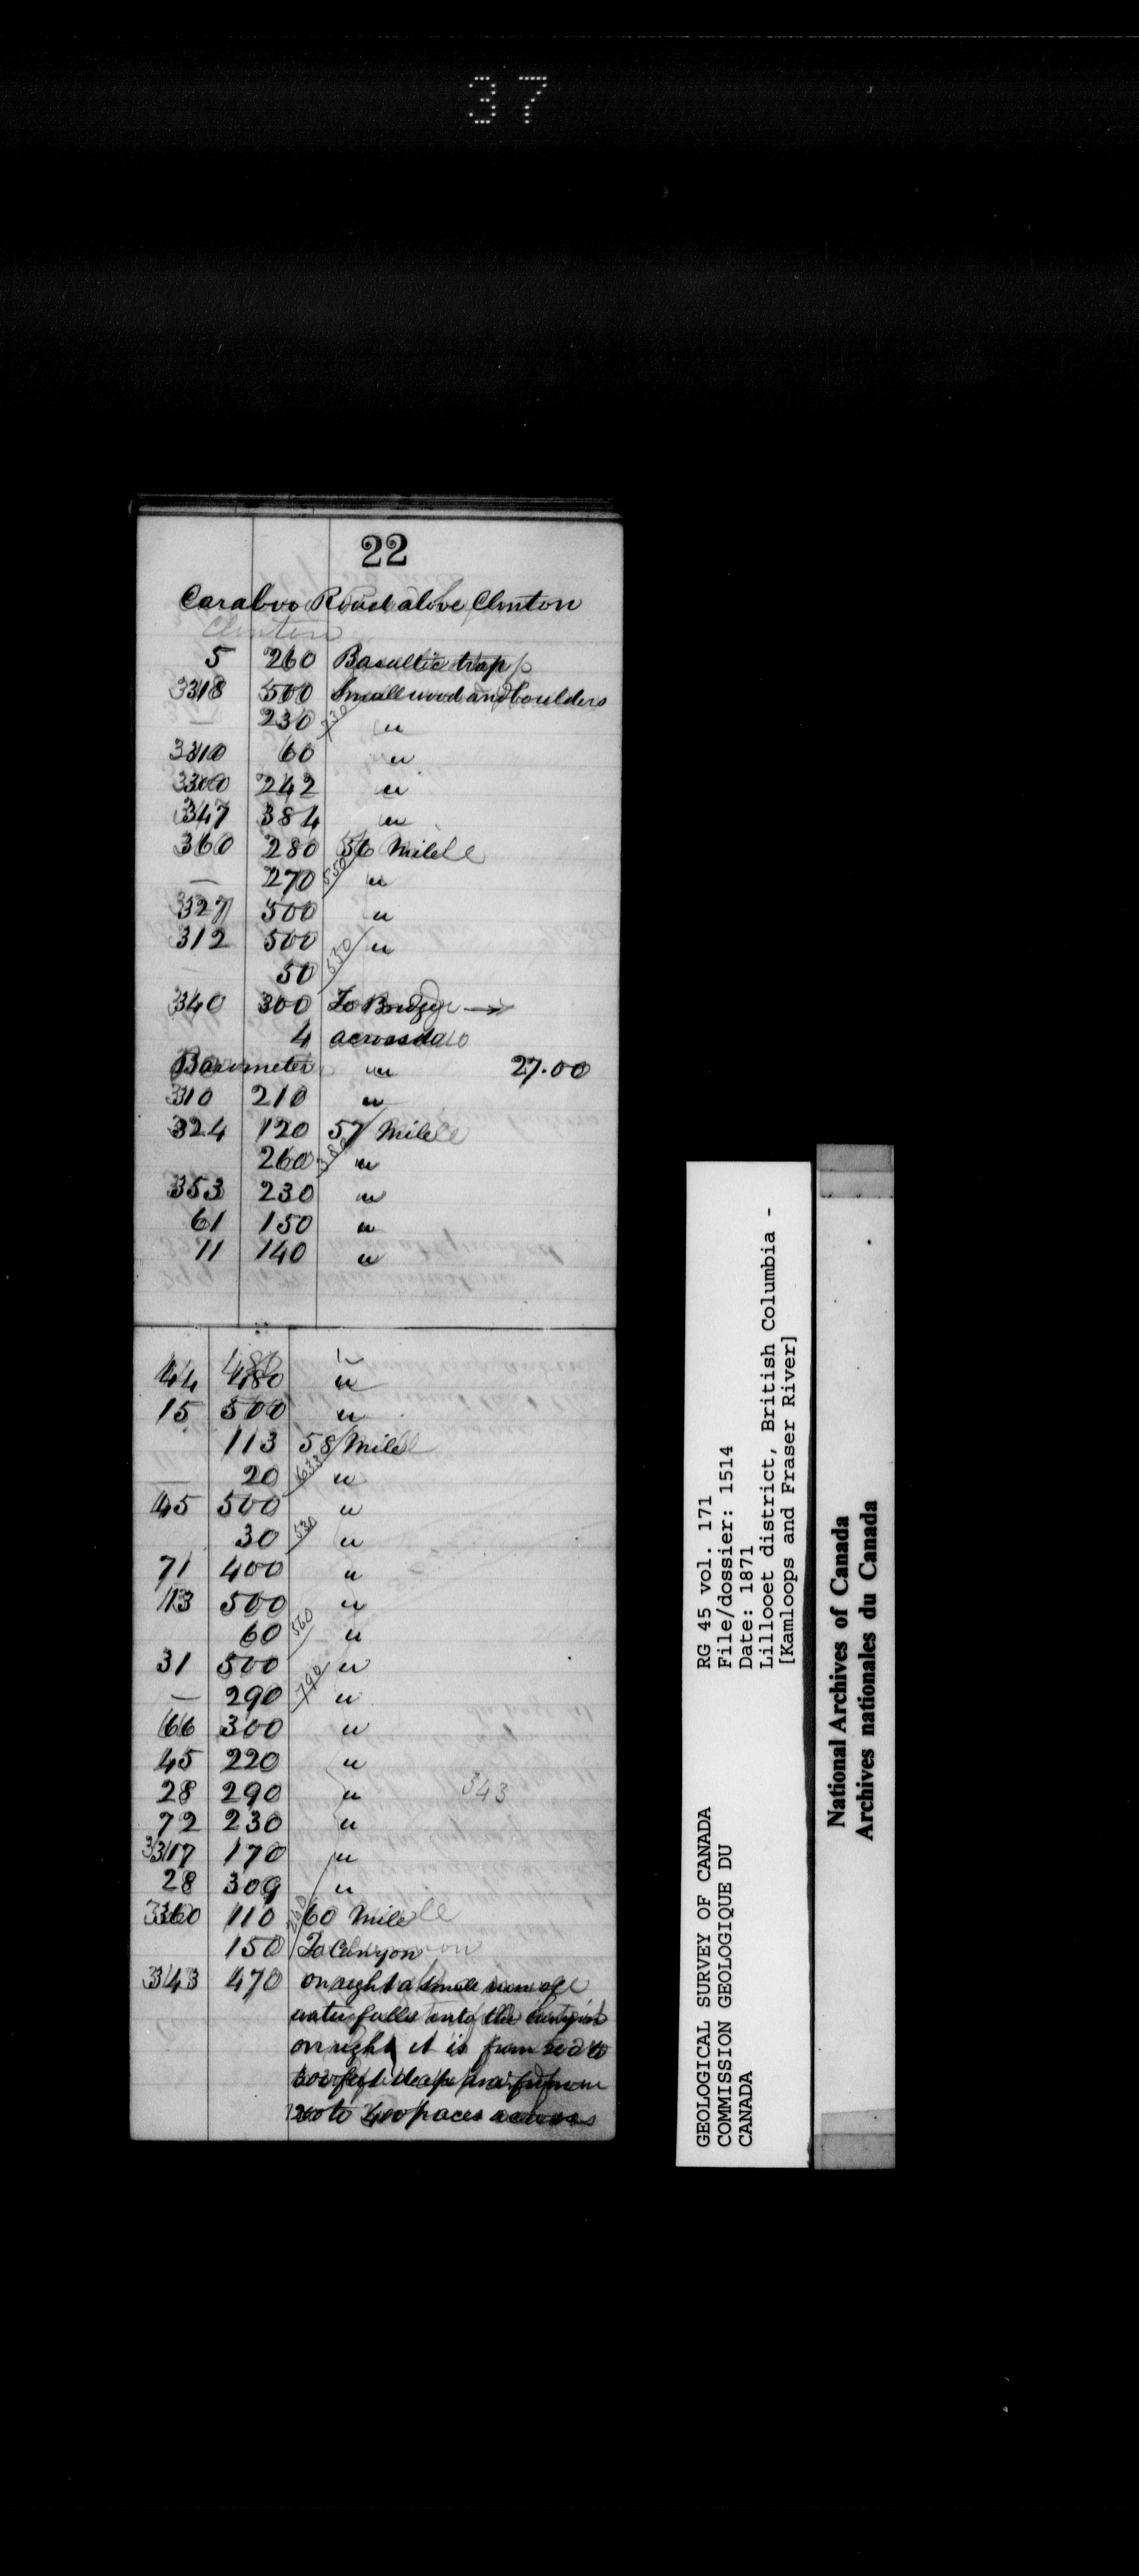 37
22
Caraboo Road above Clinton
Clinton
5 260 Basaltic trap
3318 500 Small wood and boulders
— 230 730 "
3310 60 "
3300 242 "
347 384 "
360 280 56 Mile
— 270 550 "
327 500 "
312 500 "
50 550
340 300 To Bridge →
4 across do
Barometer " 27.00
310 210 "
324 120 57 Mile
260 380 "
353 230 "
61 150 "
11 140 "
44 480 "
15 500 "
113 58 Mile
— 20 633 "
45 500 "
30 530 "
71 400 "
113 500 "
60 560 "
31 500 "
— 290 790 "
66 300 "
45 220 "
28 290 " 343
72 230 "
3317 170 "
28 309 "
3360 110 60 Mile
150 260 To Canyon
343 470 on right a small of
water falls into the
on right it is from 200 to
300 feet deep and from
200 to 400 paces across
GEOLOGICAL SURVEY OF CANADA RG 45 vol. 171
COMMISSION GEOLOGIQUE DU File/dossier: 1514
CANADA Date: 1871
Lillooet district, British Columbia -
[Kamloops and Fraser River]
National Archives of Canada
Archives nationales du Canada